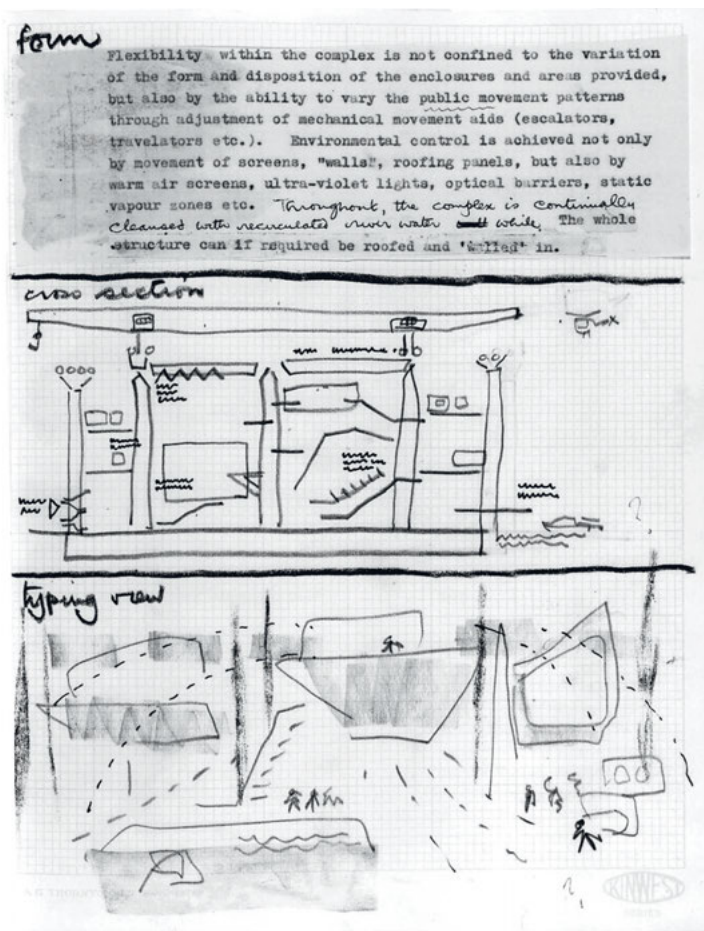 form
Flexibility within the complex is not confined to the variation
of the form and disposition of the enclosures and areas provided,
but also by the ability to vary the public movement patterns
through adjustment of mechanical movement aids (escalators,
travelators etc.). Environmental control is achieved not only
by movement of screens, "walls", roofing panels, but also by
warm air screens, ultra-violet lights, optical barriers, static
vapour zones etc. Throughout, the complex is continually
cleansed with recirculated river water while, The whole
structure can if required be roofed and 'walled' in.
cross section
typing view